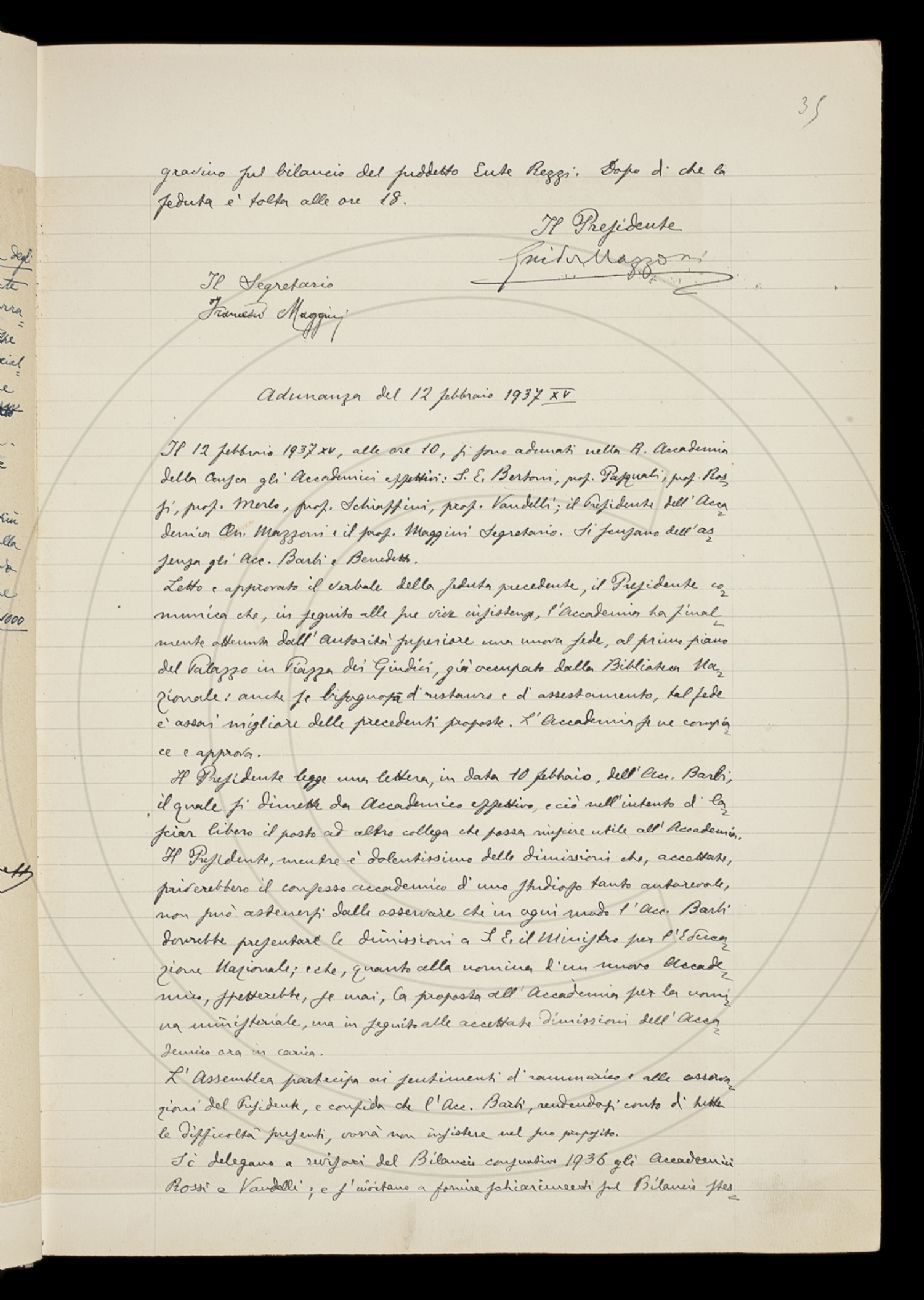 35
gravino sul bilancio del suddetto Ente Reggi. Dopo di che la
seduta è tolta alle ore 18.
Il Presidente
Guido Mazzoni
Il Segretario
Francesco Maggini
Adunanza del 12 febbraio 1937 XV
Il 12 febbraio 1937 XV, alle ore 10, si sono adunati nella R. Accademia
della Crusca gli Accademici effettivi: S. E. Bertoni, prof. Pasquali, prof. Ros=
si, prof. Merlo, prof. Schiaffini, prof. Vandelli; il Presidente dell'Acca=
demia On. Mazzoni e il prof. Maggini Segretario. Si scusano dell'as=
senza gli Acc. Barbi e Benedetto.
Letto e approvato il verbale della seduta precedente, il Presidente co=
munica che, in seguito alle sue vive insistenze, l'Accademia ha final=
mente ottenuta dall'Autorità superiore una nuova sede, al primo piano
del Palazzo in Piazza dei Giudici, già occupato dalla Biblioteca Na=
zionale: anche se bisognosa di restauro e d'assestamento, tal sede
è assai migliore delle precedenti proposte. L'Accademia se ne compia=
ce e approva.
Il Presidente legge una lettera, in data 10 febbraio, dell'Acc. Barbi,
il quale si dimette da Accademico effettivo, e ciò nell'intento di la=
sciar libero il posto ad altro collega che possa riuscire utile all'Accademia.
Il Presidente, mentre è dolentissimo delle dimissioni che, accettate,
priverebbero il consesso accademico d'uno studioso tanto autorevole,
non può astenersi dalle osservare che in ogni modo l'Acc. Barbi
dovrebbe presentare le dimissioni a S. E. il Ministro per l'Educa=
zione Nazionale; e che, quanto alla nomina d'un nuovo Accade=
mico, spetterebbe, se mai, la proposta all'Accademia per la nomi=
na ministeriale, ma in seguito alle accettate dimissioni dell'Acca=
demico ora in carica.
L'Assemblea partecipa ai sentimenti di rammarico e alle osserva=
zioni del Presidente, e confida che l'Acc. Barbi, rendendosi conto di tutte
le difficoltà presenti, vorrà non insistere nel suo proposito.
Si delegano a revisori del Bilancio consuntivo 1936 gli Accademici
Rossi e Vandelli; e s'invitano a fornire schiarimenti sul Bilancio stes=